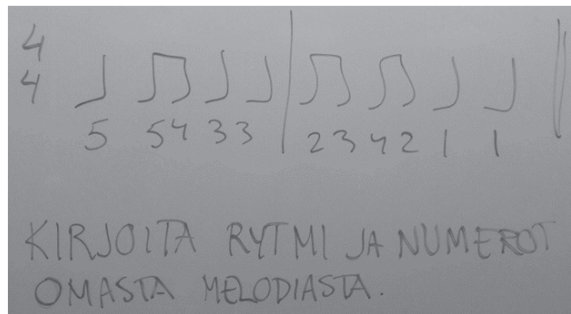 4
4
5 5 4 3 3 2 3 4 2 1 1
KIRJOITA RYTMI JA NUMEROT
OMASTA MELODIASTA.